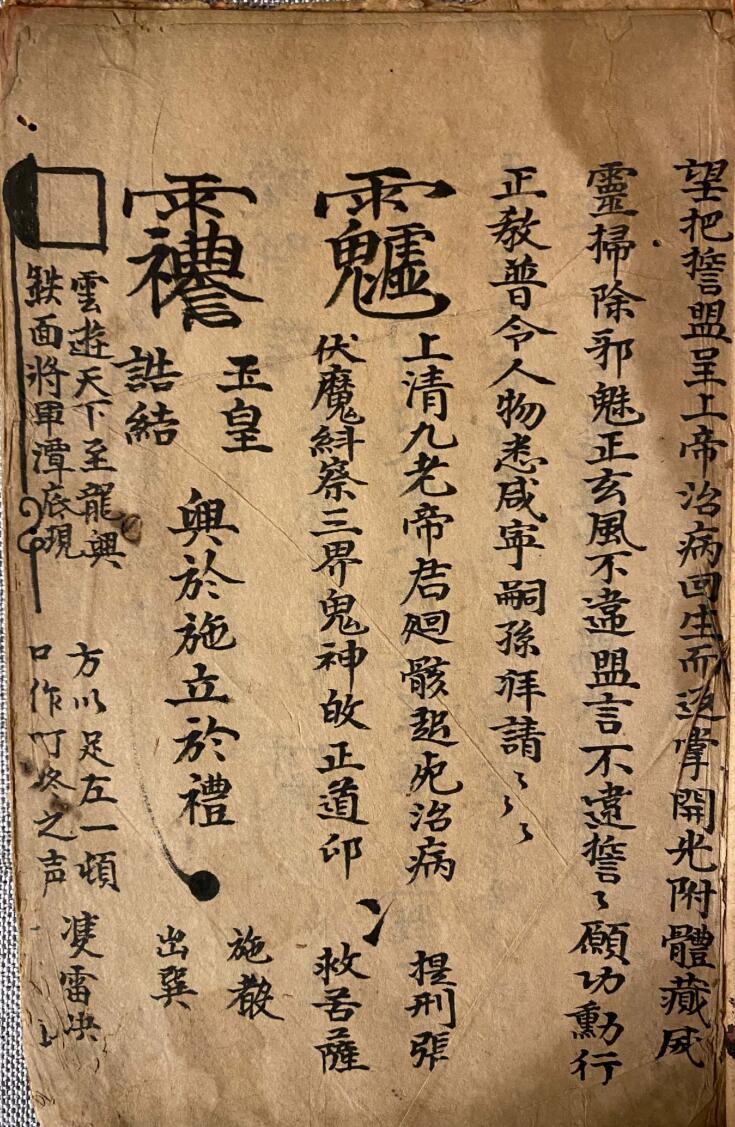 望把誓盟呈上帝治病回生而返掌開光附體藏威
靈掃除邪魅正玄風不違盟言不違誓〻願功勳行
正教普令人物悉咸寧嗣孫拜請〻〻〻
上清九老帝君廻骸起死治病
提刑張
伏魔糾察三界鬼神收正道印
救苦薩
玉皇
誥結
興於施立於禮
施教
出巽
雲遊天下至龍興
鉄面將軍潭底現
方以足左一頓
口作叮咚之声
雙雷决